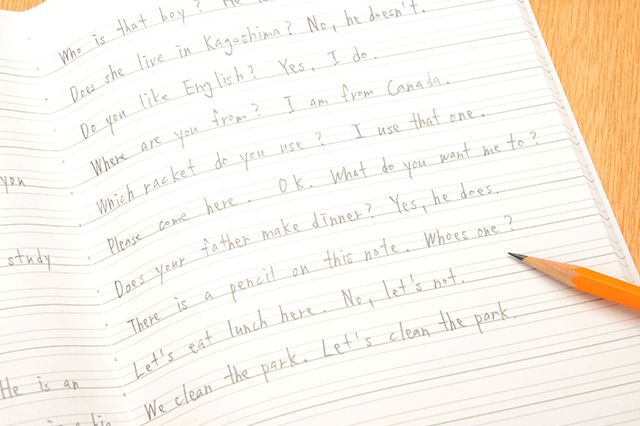 you
study
He is an
Who is that boy? He is
Does she live in Kagoshima? No, he doesn't.
Do you like English? Yes, I do.
Where are you from? I am from Canada.
Which racket do you use? I use that one.
Please come here. OK. What do you want me to?
Does your father make dinner? Yes, he does.
There is a pencil on this note. Whoes one?
Let's eat lunch here. No, let's not.
We clean the park. Let's clean the park.